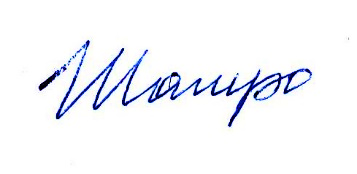 Шапиро